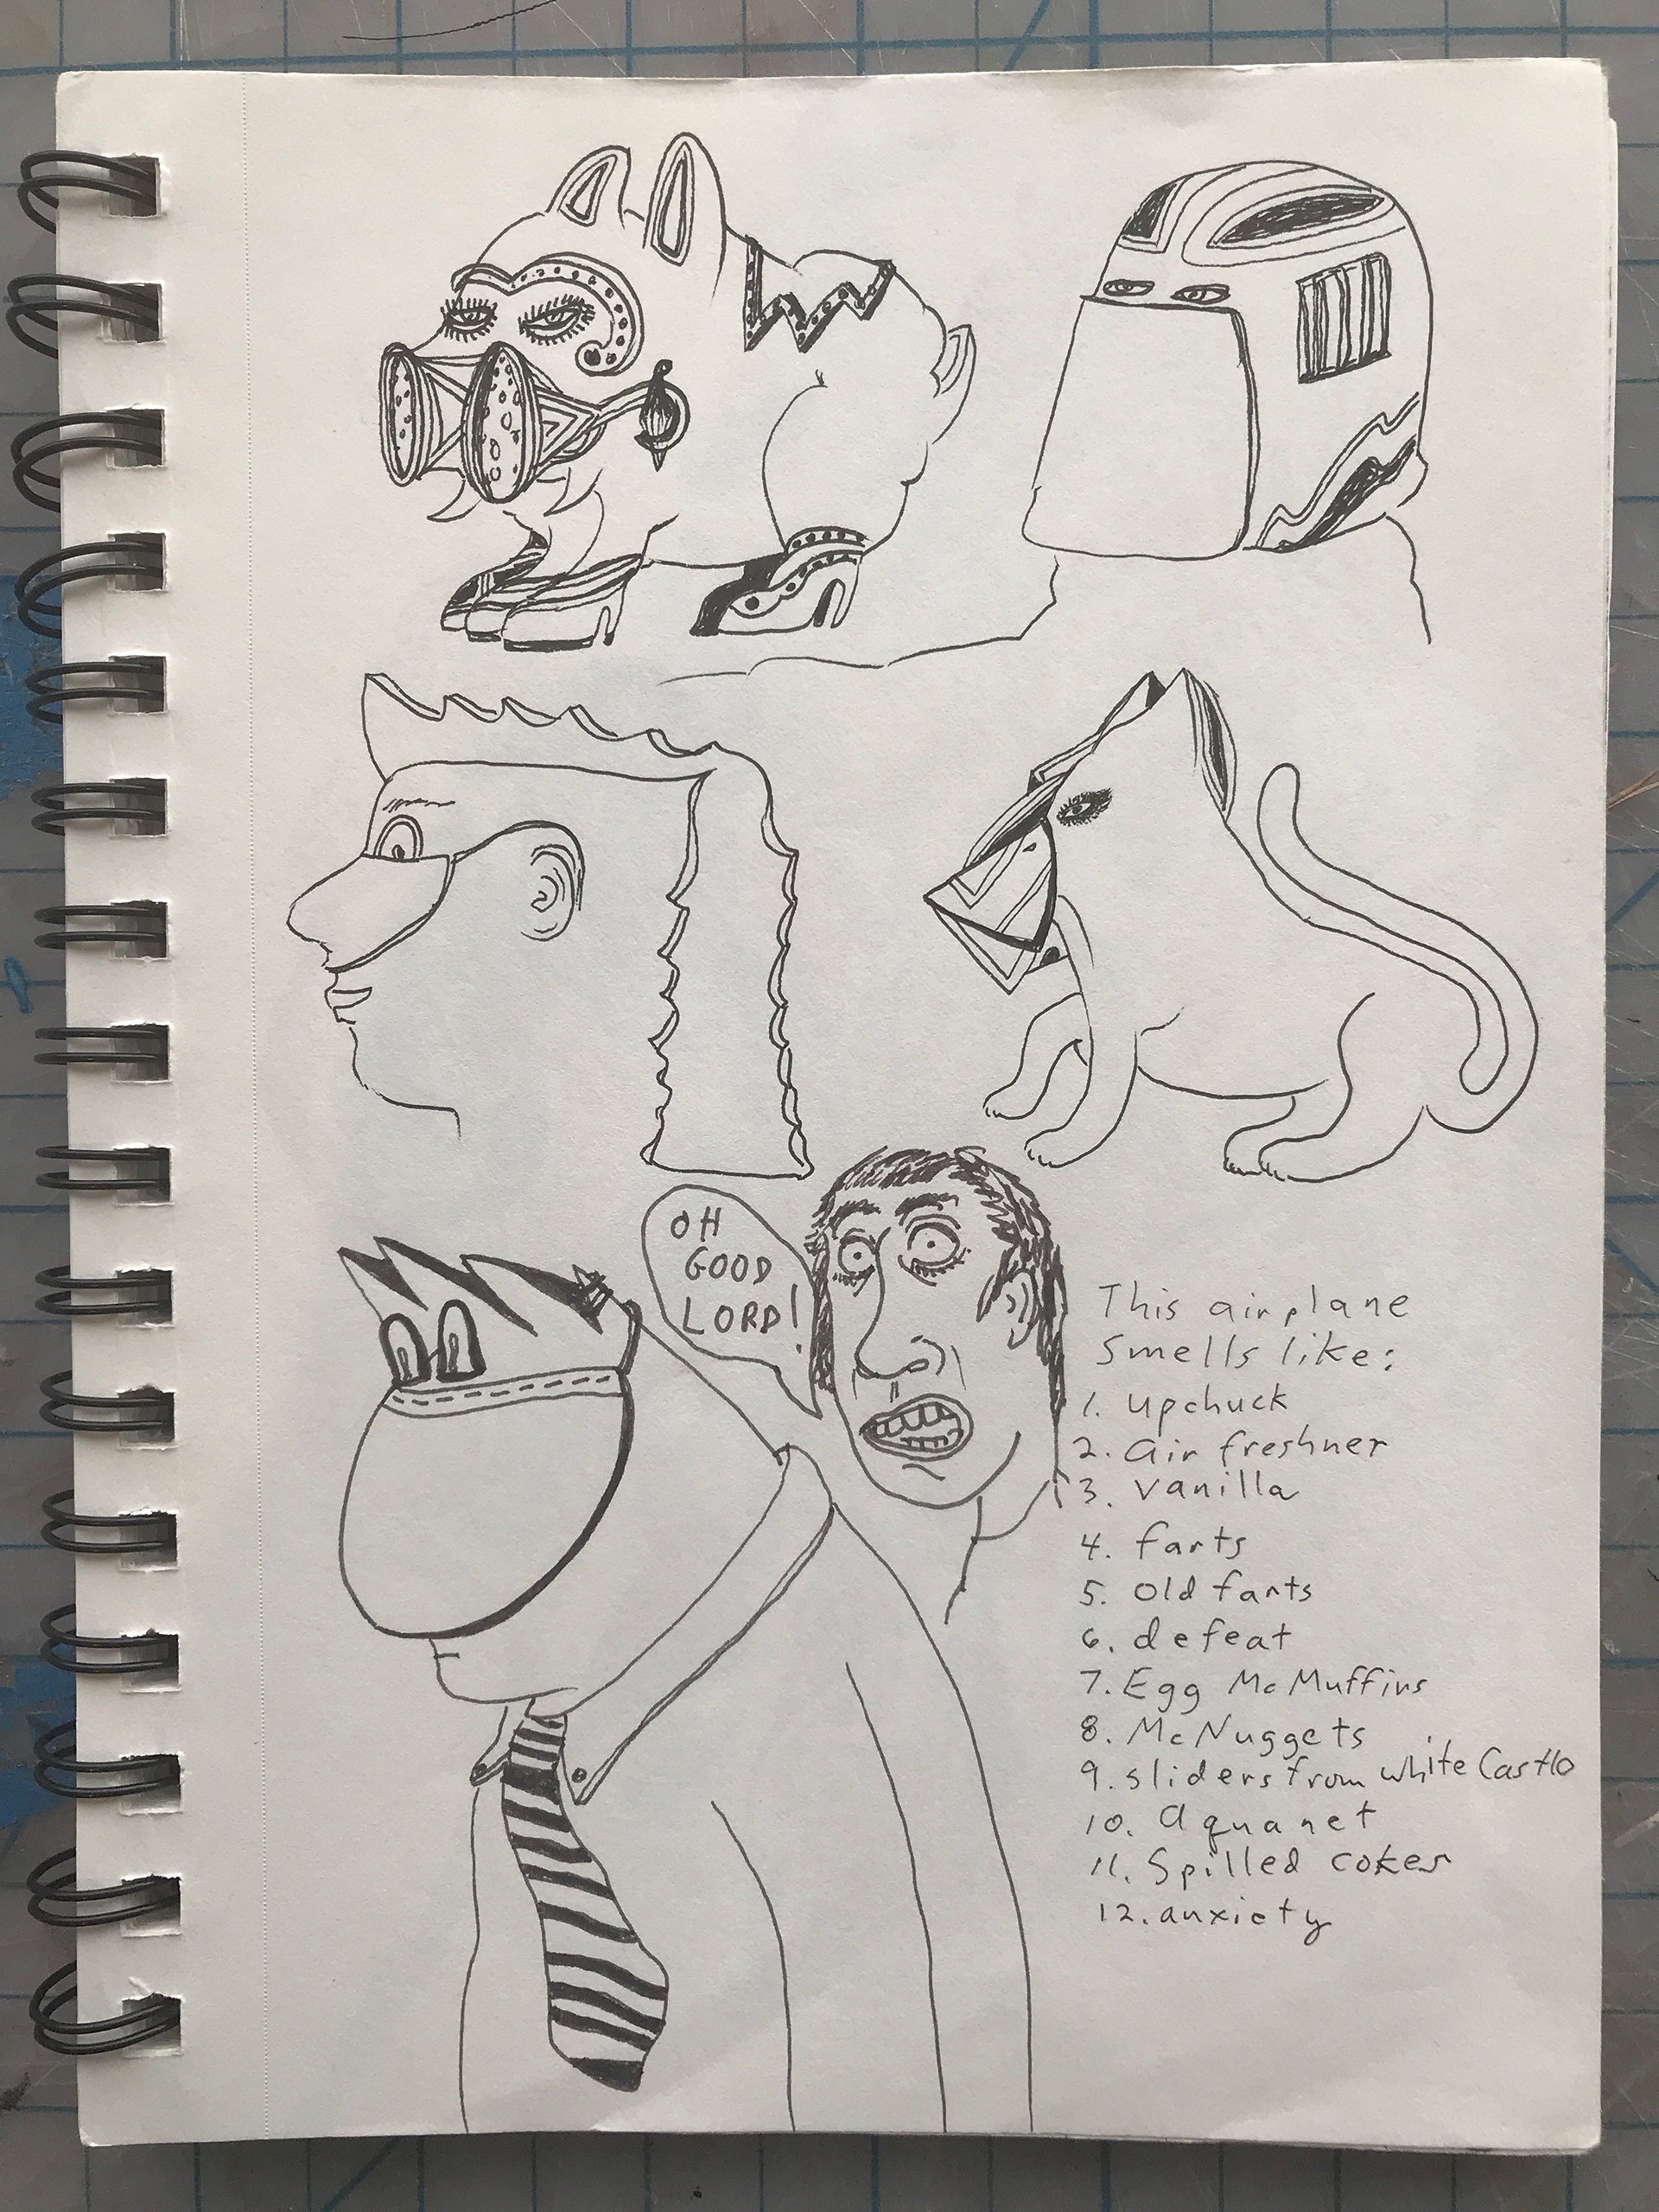 OH
GOOD
LORD!
This airplane
Smells like:
1. upchuck
2. air freshner
3. vanilla
4. farts
5. old farts
6. defeat
7. Egg McMuffins
8. McNuggets
9. sliders from white Castle
10. aquanet
11. Spilled cokes
12. anxiety